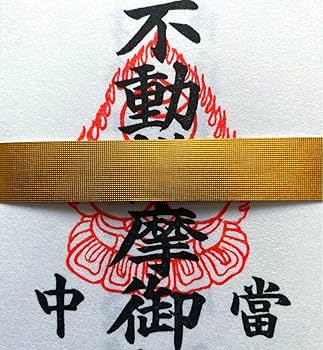 不動
摩御
當
中